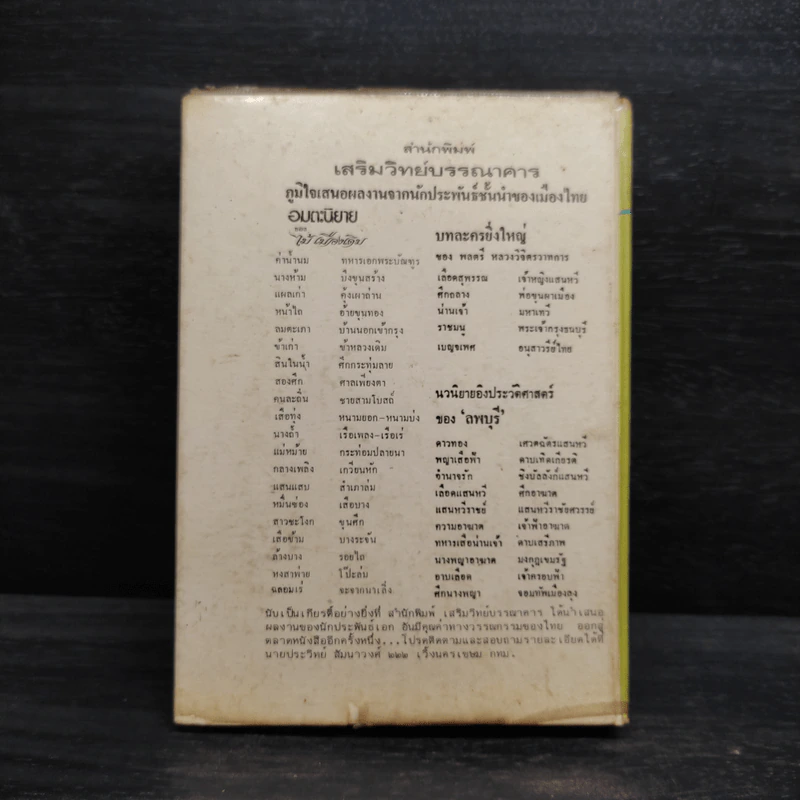 สำนักพิมพ์
เสริมวิทย์บรรณาคาร
ภูมิใจเสนอผลงานจากนักประพันธ์ชั้นนำของเมืองไทย
อมตะนิยาย
ของ ไม้ เมืองเดิม
ค่าน้ำนม ทหารเอกพระบัณฑูร
นางห้าม บึงขุนสร้าง
แผลเก่า คุ้งเผาถ่าน
หน้าไถ อ้ายขุนทอง
ลมตะเภา บ้านนอกเข้ากรุง
ข้าเก่า ข้าหลวงเดิม
สินในน้ำ ศึกกระทุ่มลาย
สองศึก ศาลเพียงตา
คนละถิ่น ชายสามโบสถ์
เสือทุ่ง หนามยอก-หนามบ่ง
นางถ้ำ เรือเพลง-เรือเร่
แม่หม้าย กระท่อมปลายนา
กลางเพลิง เกวียนหัก
แสนแสบ สำเภาล่ม
หมื่นซ่อง เสือบาง
สาวชะโงก ขุนศึก
เสือข้าม บางระจัน
ล้างบาง รอยไถ
หงสาพ่าย โป๊ะล่ม
ฉลอมเร่ จะจากนาเลิ่ง
บทละครยิ่งใหญ่
ของ พลตรี หลวงวิจิตรวาทการ
เลือดสุพรรณ เจ้าหญิงแสนหวี
ศึกถลาง พ่อขุนผาเมือง
น่านเจ้า มหาเทวี
ราชมนู พระเจ้ากรุงธนบุรี
เบญจเพศ อนุสาวรีย์ไทย
นวนิยายอิงประวัติศาสตร์
ของ 'ลพบุรี'
ดาวทอง เศวตฉัตรแสนหวี
พญาเสือฟ้า ดาบเทิดเกียรติ
อำนาจรัก ชิงบัลลังก์แสนหวี
เลือดแสนหวี ศึกอาฆาต
แสนหวีราชย์ แสนหวีราชัศวรรย์
ความอาฆาต เจ้าฟ้าอาฆาต
ทหารเสือน่านเจ้า ดาบเสรีภาพ
นางพญาอาฆาต มงกุฎเขมรัฐ
อาบเลือด เจ้าครอบฟ้า
ศึกนางพญา จอมทัพเมืองลุง
นับเป็นเกียรติอย่างยิ่งที่ สำนักพิมพ์ เสริมวิทย์บรรณาคาร ได้นำเสนอ
ผลงานของนักประพันธ์เอก อันมีคุณค่าทางวรรณกรรมของไทย ออกสู่
ตลาดหนังสืออีกครั้งหนึ่ง...โปรดติดตามและสอบถามรายละเอียดได้ที่
นายประวิทย์ สัมนาวงศ์ ๒๒๒ เวิ้งนครเขษม กทม.